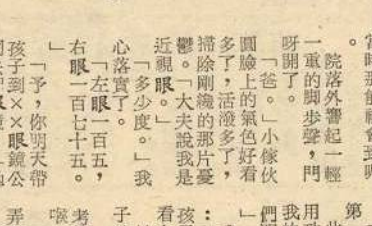 。
院落外響起一輕
一重的脚步聲，門
呀開了。
「爸。」小傢伙
圓臉上的氣色好看
多了，活潑多了，
掃除剛纔的那片憂
鬱。「大夫說我是
近視眼。」
「多少度。」我
心落實了。
「左眼一百五，
右眼一百七十五。
」
「予，你明天帶
孩子到××眼鏡公
第
此
用功
我的
們
孩
看
子
考
喉
弄